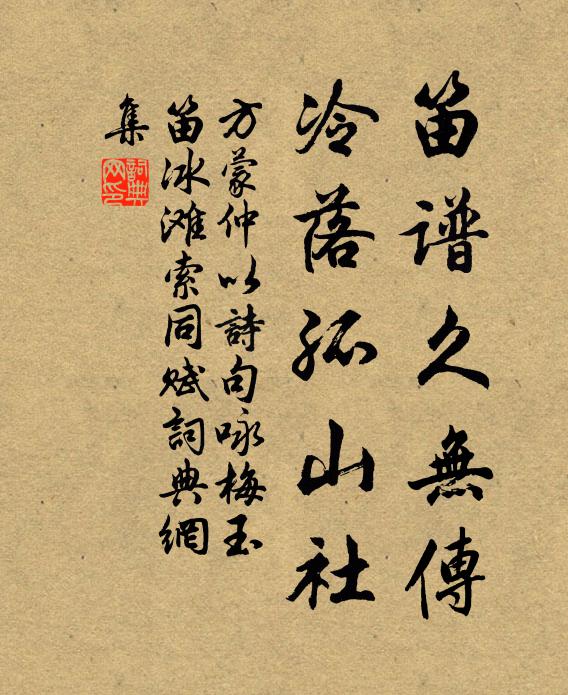 笛譜久無傳
冷落孤山社
方蒙仲以詩句咏梅玉
笛冰滩索同賦詞典網
集
詞典
网印